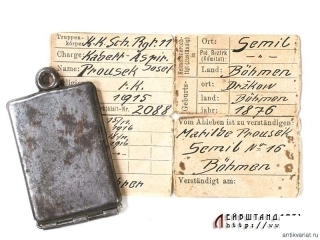 Truppen-
körper: K.K.Sch.Rgt.11
Charge: Kadett Aspir.
Name: Prousek Josef
r.k.
1915
-Nr. 2088
1916
1916
Ort: Semil
Pol. Bezirk
Land: Böhmen
Geburts-
Ort: Držkow
land: Böhmen
jahr: 1876
Vom Ableben ist zu verständigen:
Matilde Prousek
Semil No 16
Böhmen
Verständigt am:
http://www.
antikvariat.ru